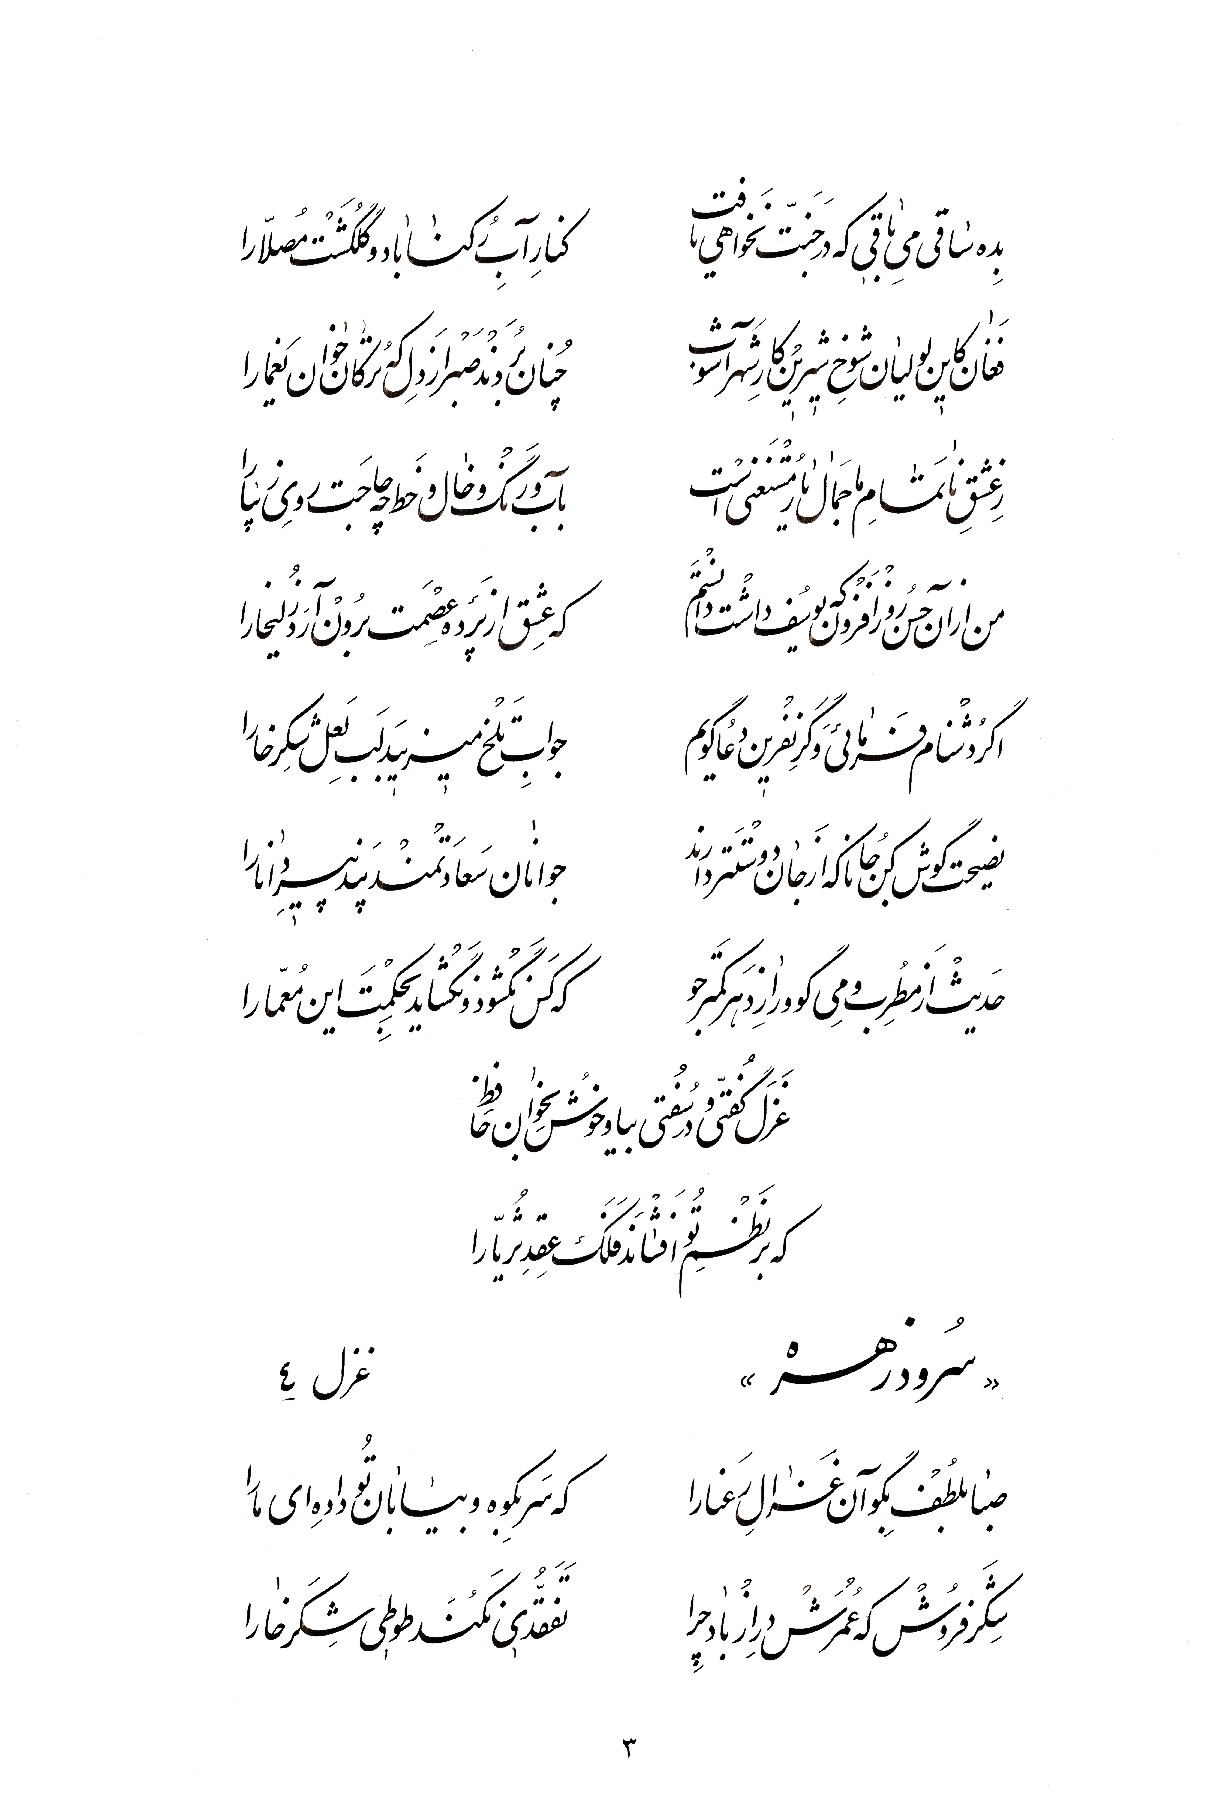 بده ساقی می باقی که در جنّت نخواهی یافت کنار آب رکناباد و گلگشت مصلّا را
فغان کاین لولیان شوخ شیرین کار شهرآشوب چنان بردند صبر از دل که ترکان خوان یغما را
ز عشق ناتمام ما جمال یار مستغنی است بآب و رنگ و خال و خط چه حاجت روی زیبا را
من از آن حسن روزافزون که یوسف داشت دانستم که عشق از پرده عصمت برون آرد زلیخا را
اگر دشنام فرمائی وگر نفرین دعا گویم جواب تلخ میزیبد لب لعل شکرخا را
نصیحت گوش کن جانا که از جان دوستتر دارند جوانان سعادتمند پند پیر دانا را
حدیث از مطرب و می گو و راز دهر کمتر جو که کس نگشود و نگشاید بحکمت این معمّا را
غزل گفتیّ و در سفتی بیا و خوش بخوان حافظ
که بر نظم تو افشاند فلک عقد ثریّا را
« سرود زهره » غزل ٤
صبا بلطف بگو آن غزال رعنا را که سر بکوه و بیابان تو داده‌ای ما را
شکر فروش که عمرش دراز باد چرا تفقّدی نکند طوطی شکرخا را
۳